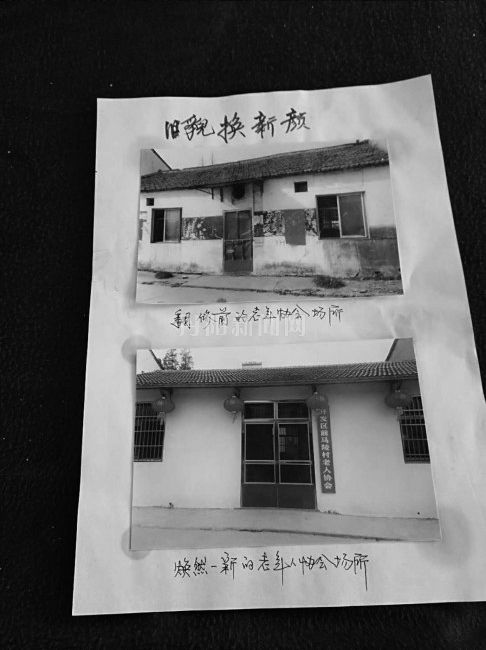 旧貌换新颜
翻修前的老年协会场所
新闻网
开发区前马陵村老人协会
焕然一新的老年人协会场所